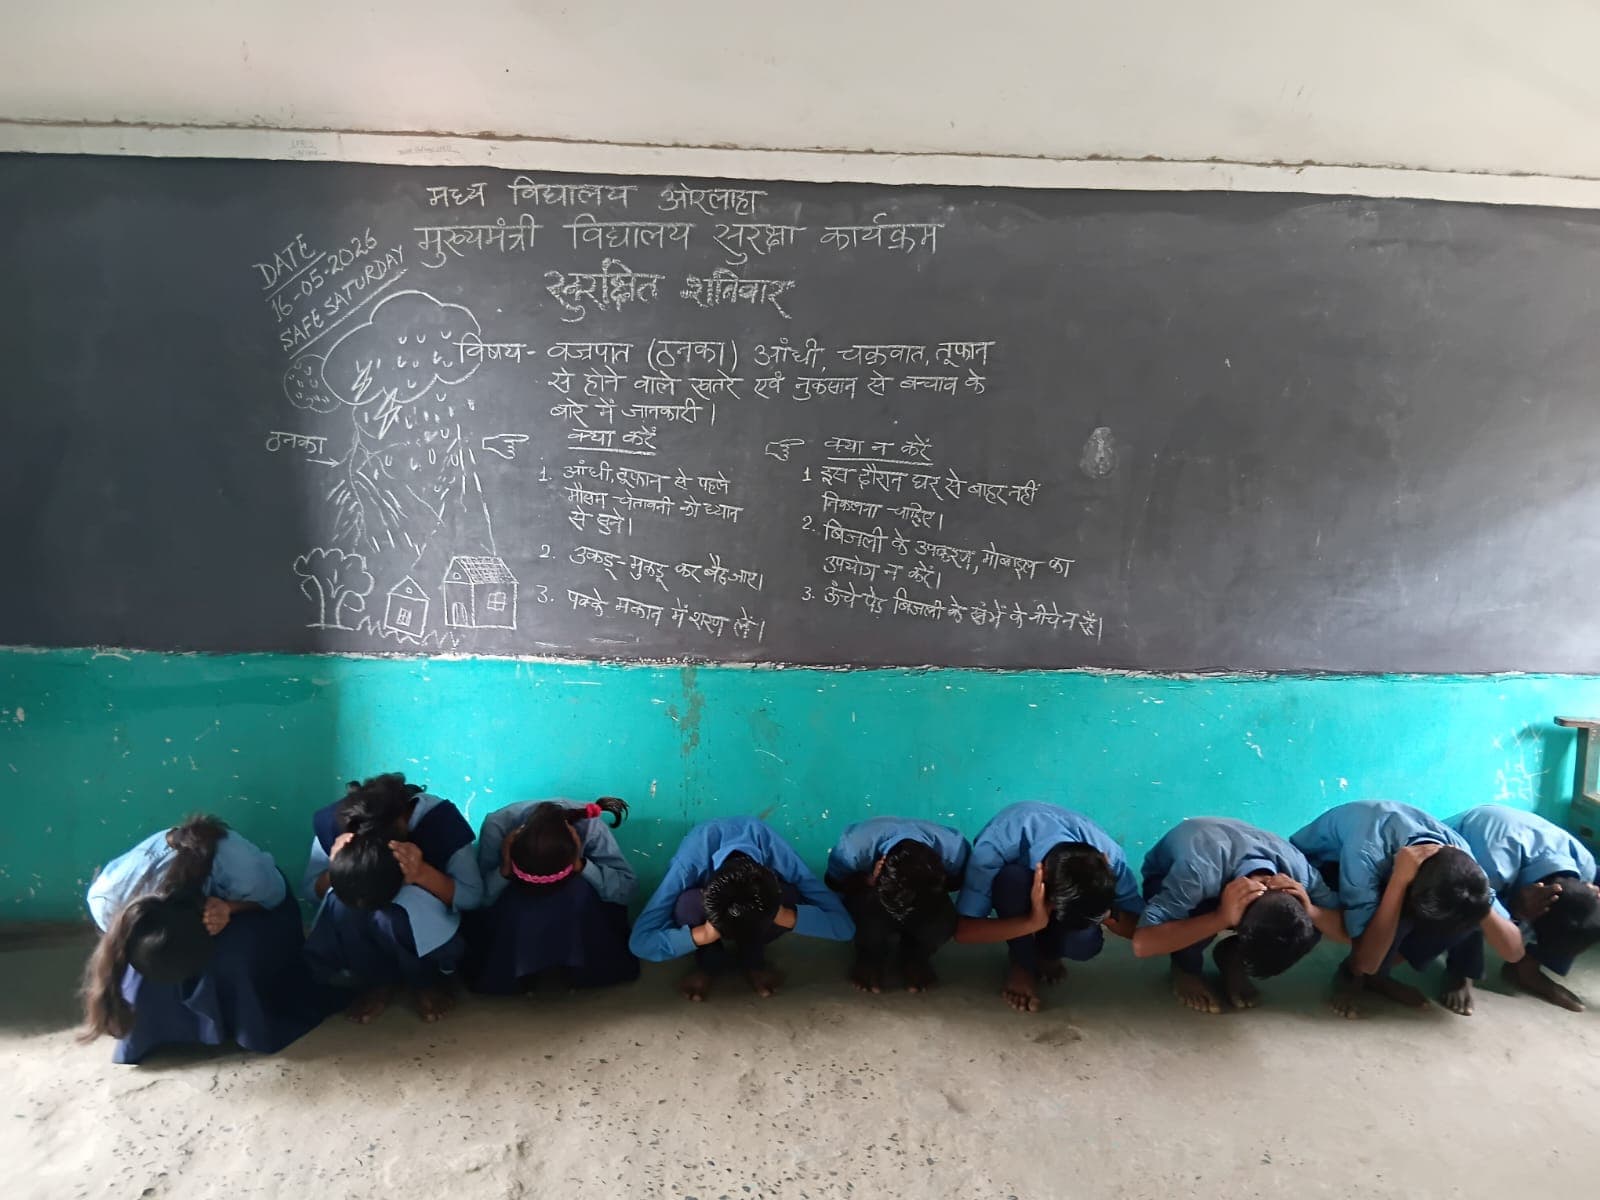 मध्य विद्यालय ओरलाहा
मुख्यमंत्री विद्यालय सुरक्षा कार्यक्रम
सुरक्षित शनिवार
DATE
16-05-2026
SAFE SATURDAY
विषय- वज्रपात (ठनका) आंधी, चक्रवात, तूफान
से होने वाले खतरे एवं नुकसान से बचाव के
बारे में जानकारी।
ठनका
क्या करें
1. आंधी, तूफान से पहले
मौसम चेतावनी को ध्यान
से सुने।
2. उकड़ू-मुकड़ू कर बैठ जाए।
3. पक्के मकान में शरण लें।
क्या न करें
1 इस दौरान घर से बाहर नहीं
निकलना चाहिए।
2. बिजली के उपकरण, मोबाइल का
उपयोग न करें।
3. ऊंचे पेड़ बिजली के खंभे के नीचे न रहें।